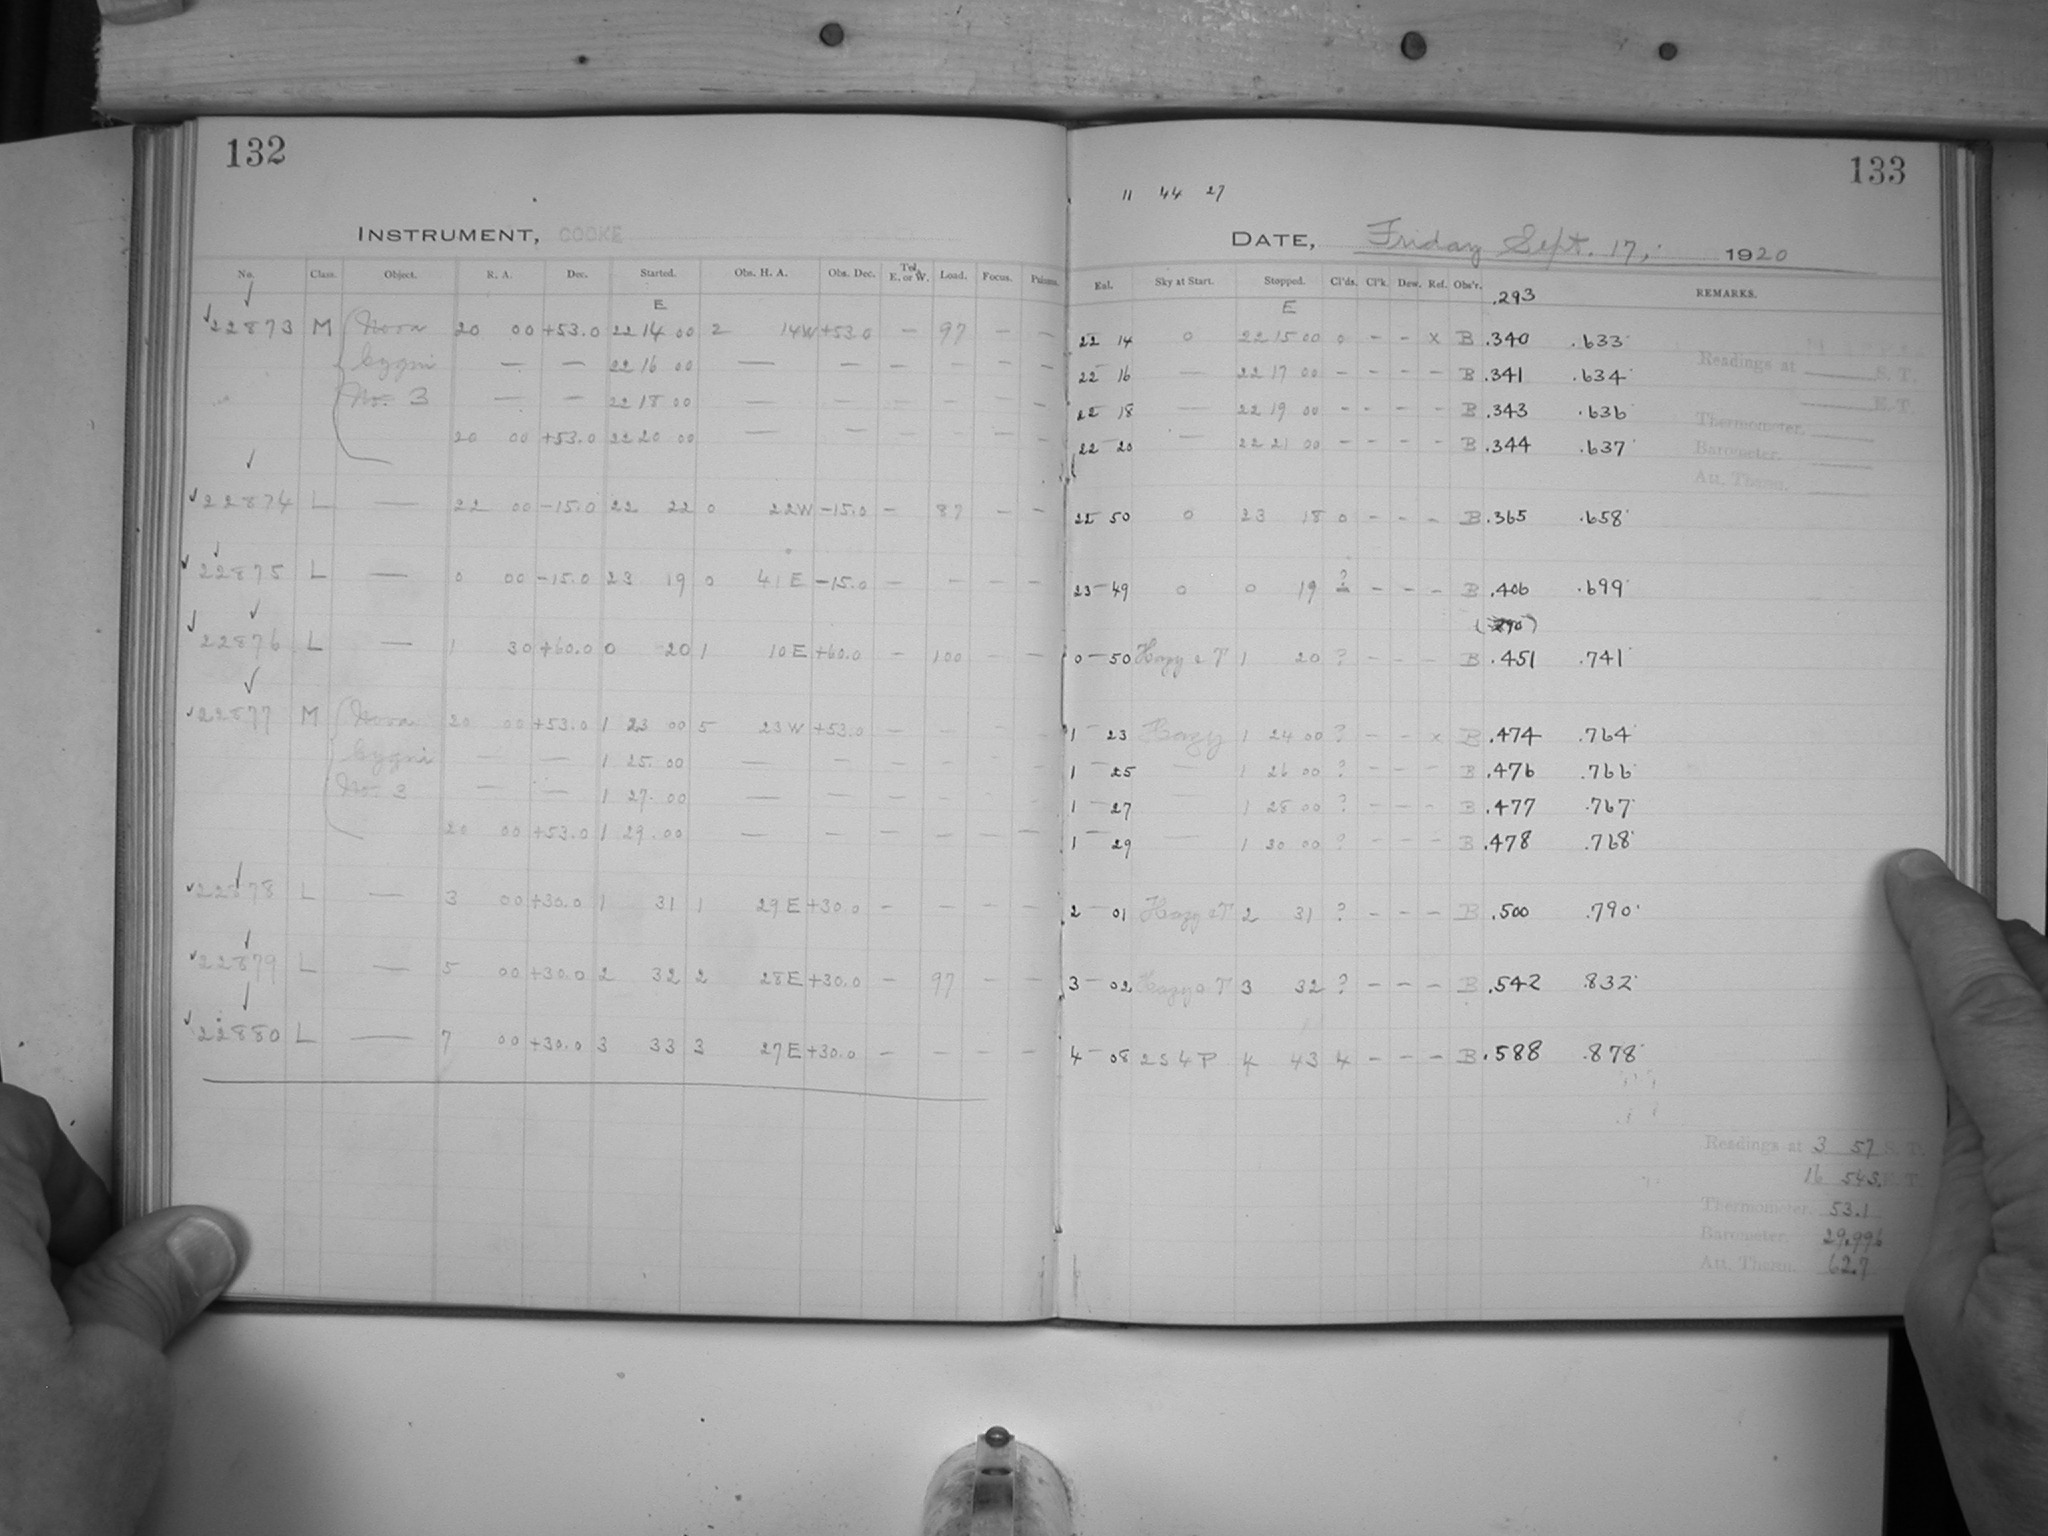 132
INSTRUMENT, COOKE
No. Class. Object. R. A. Dec. Started. Obs. H. A. Obs. Dec. Tel. E. or W. Load. Focus.
E
22873 M Nova 20 00 +53.0 22 14 00 2 14 W +53.0 — 97 — —
Cygni — — 22 16 00 — — — — — —
No. 3 — — 22 18 00 — — — — — —
20 00 +53.0 22 20 00 — — — — — —
22874 L — 22 00 -15.0 22 22 0 22 W -15.0 — 87 — —
22875 L — 0 00 -15.0 23 19 0 41 E -15.0 — — — —
22876 L — 1 30 +60.0 0 20 1 10 E +60.0 — 100 — —
22877 M Nova 20 00 +53.0 1 23 00 5 23 W +53.0 — — — —
Cygni — — 1 25.00 — — — — — —
No. 3 — — 1 27.00 — — — — — —
20 00 +53.0 1 29.00 — — — — — —
22878 L — 3 00 +30.0 1 31 1 29 E +30.0 — — — —
22879 L — 5 00 +30.0 2 32 2 28 E +30.0 — 97 — —
22880 L — 7 00 +30.0 3 33 3 27 E +30.0 — — — —
133
11 44 27
DATE, Friday Sept. 17, 1920
Sky at Start. Stopped. Cl'ds. Cl'k. Dew. Ref. Obs'r. REMARKS.
E .293
22 14 0 22 15 00 0 - - x B .340 .633
22 16 — 22 17 00 - - - - B .341 .634
22 18 — 22 19 00 - - - - B .343 .636
22 20 — 22 21 00 - - - - B .344 .637
22 50 0 23 18 0 - - - B .365 .658
23 49 0 0 19 ? - - - B .406 .699
0 50 Hazy & T 1 20 ? - - - B .451 .741
1 23 Hazy 1 24 00 ? - - x B .474 .764
1 25 — 1 26 00 ? - - - B .476 .766
1 27 — 1 28 00 ? - - - B .477 .767
1 29 — 1 30 00 ? - - - B .478 .768
2 01 Hazy & T 2 31 ? - - - B .500 .790
3 02 Hazy & T 3 32 ? - - - B .542 .832
4 08 2 S 4 P 4 43 4 - - - B .588 .878
Readings at S. T.
E. T.
Thermometer.
Barometer.
Att. Therm.
Readings at 3 57 S. T.
16 54 S. E. T.
Thermometer. 53.1
Barometer. 29.996
Att. Therm. 62.7